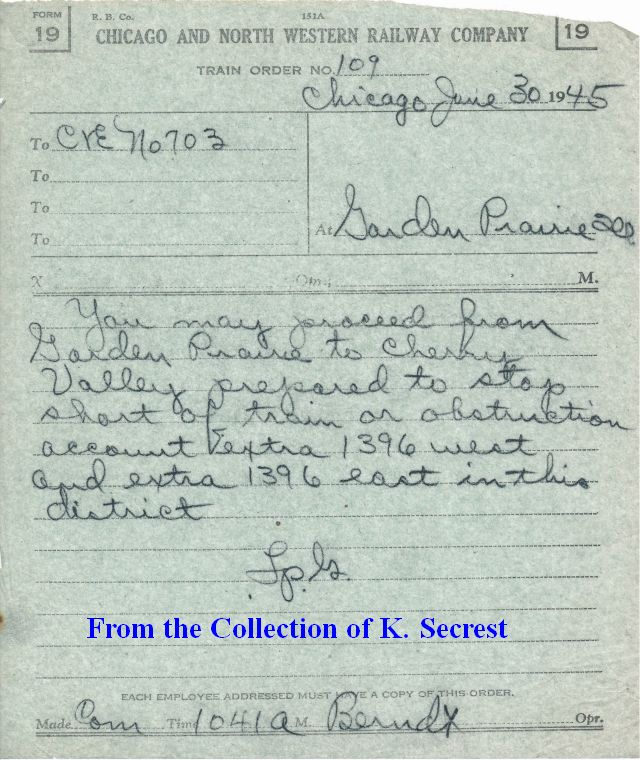 FORM 19 R. B. Co. 151A 19
CHICAGO AND NORTH WESTERN RAILWAY COMPANY
TRAIN ORDER NO. 109
Chicago June 30 1945
To C&E No 703
To
To
To
At Garden Prairie Ill
X Opr.; M.
You may proceed from
Garden Prairie to Cherry
Valley prepared to stop
short of train or obstruction
account extra 1396 west
and extra 1396 east in this
district
From the Collection of K. Secrest
EACH EMPLOYEE ADDRESSED MUST HAVE A COPY OF THIS ORDER.
Made Com Time 1041 A M. Berndt Opr.